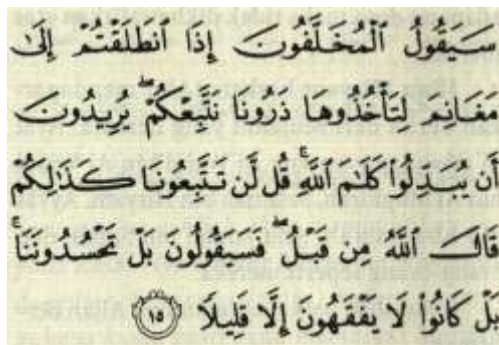 سَيَقُولُ الْمُخَلَّفُونَ إِذَا انْطَلَقْتُمْ إِلَىٰ
مَغَانِمَ لِتَأْخُذُوهَا ذَرُونَا نَتَّبِعْكُمْ ۖ يُرِيدُونَ
أَنْ يُبَدِّلُوا كَلَامَ اللَّهِ ۚ قُلْ لَنْ تَتَّبِعُونَا كَذَٰلِكُمْ
قَالَ اللَّهُ مِنْ قَبْلُ ۖ فَسَيَقُولُونَ بَلْ تَحْسُدُونَنَا ۚ
بَلْ كَانُوا لَا يَفْقَهُونَ إِلَّا قَلِيلًا ۝١٥